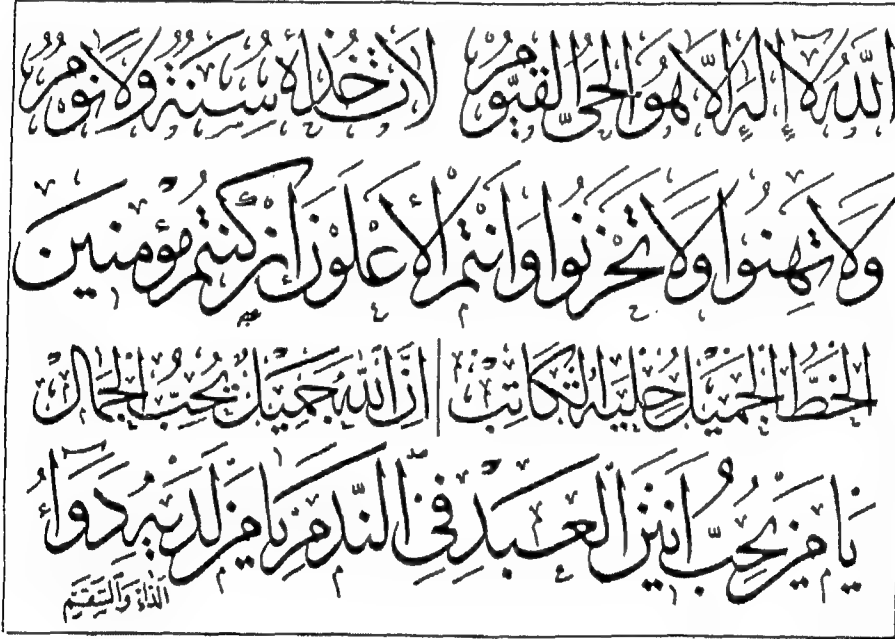 اللَّهُ لَا إِلَٰهَ إِلَّا هُوَ الْحَيُّ الْقَيُّومُ لَا تَأْخُذُهُ سِنَةٌ وَلَا نَوْمٌ
وَلَا تَهِنُوا وَلَا تَحْزَنُوا وَأَنْتُمُ الْأَعْلَوْنَ إِنْ كُنْتُمْ مُؤْمِنِينَ
الْخَطُّ الْجَمِيلُ حِلْيَةُ الْكَاتِبِ إِنَّ اللَّهَ جَمِيلٌ يُحِبُّ الْجَمَالَ
يَا مَنْ يُحِبُّ أَنِينَ الْعَبْدِ فِي النَّدَمِ يَا مَنْ لَدَيْهِ دَوَاءُ
الدَّاءِ وَالسَّقَمِ